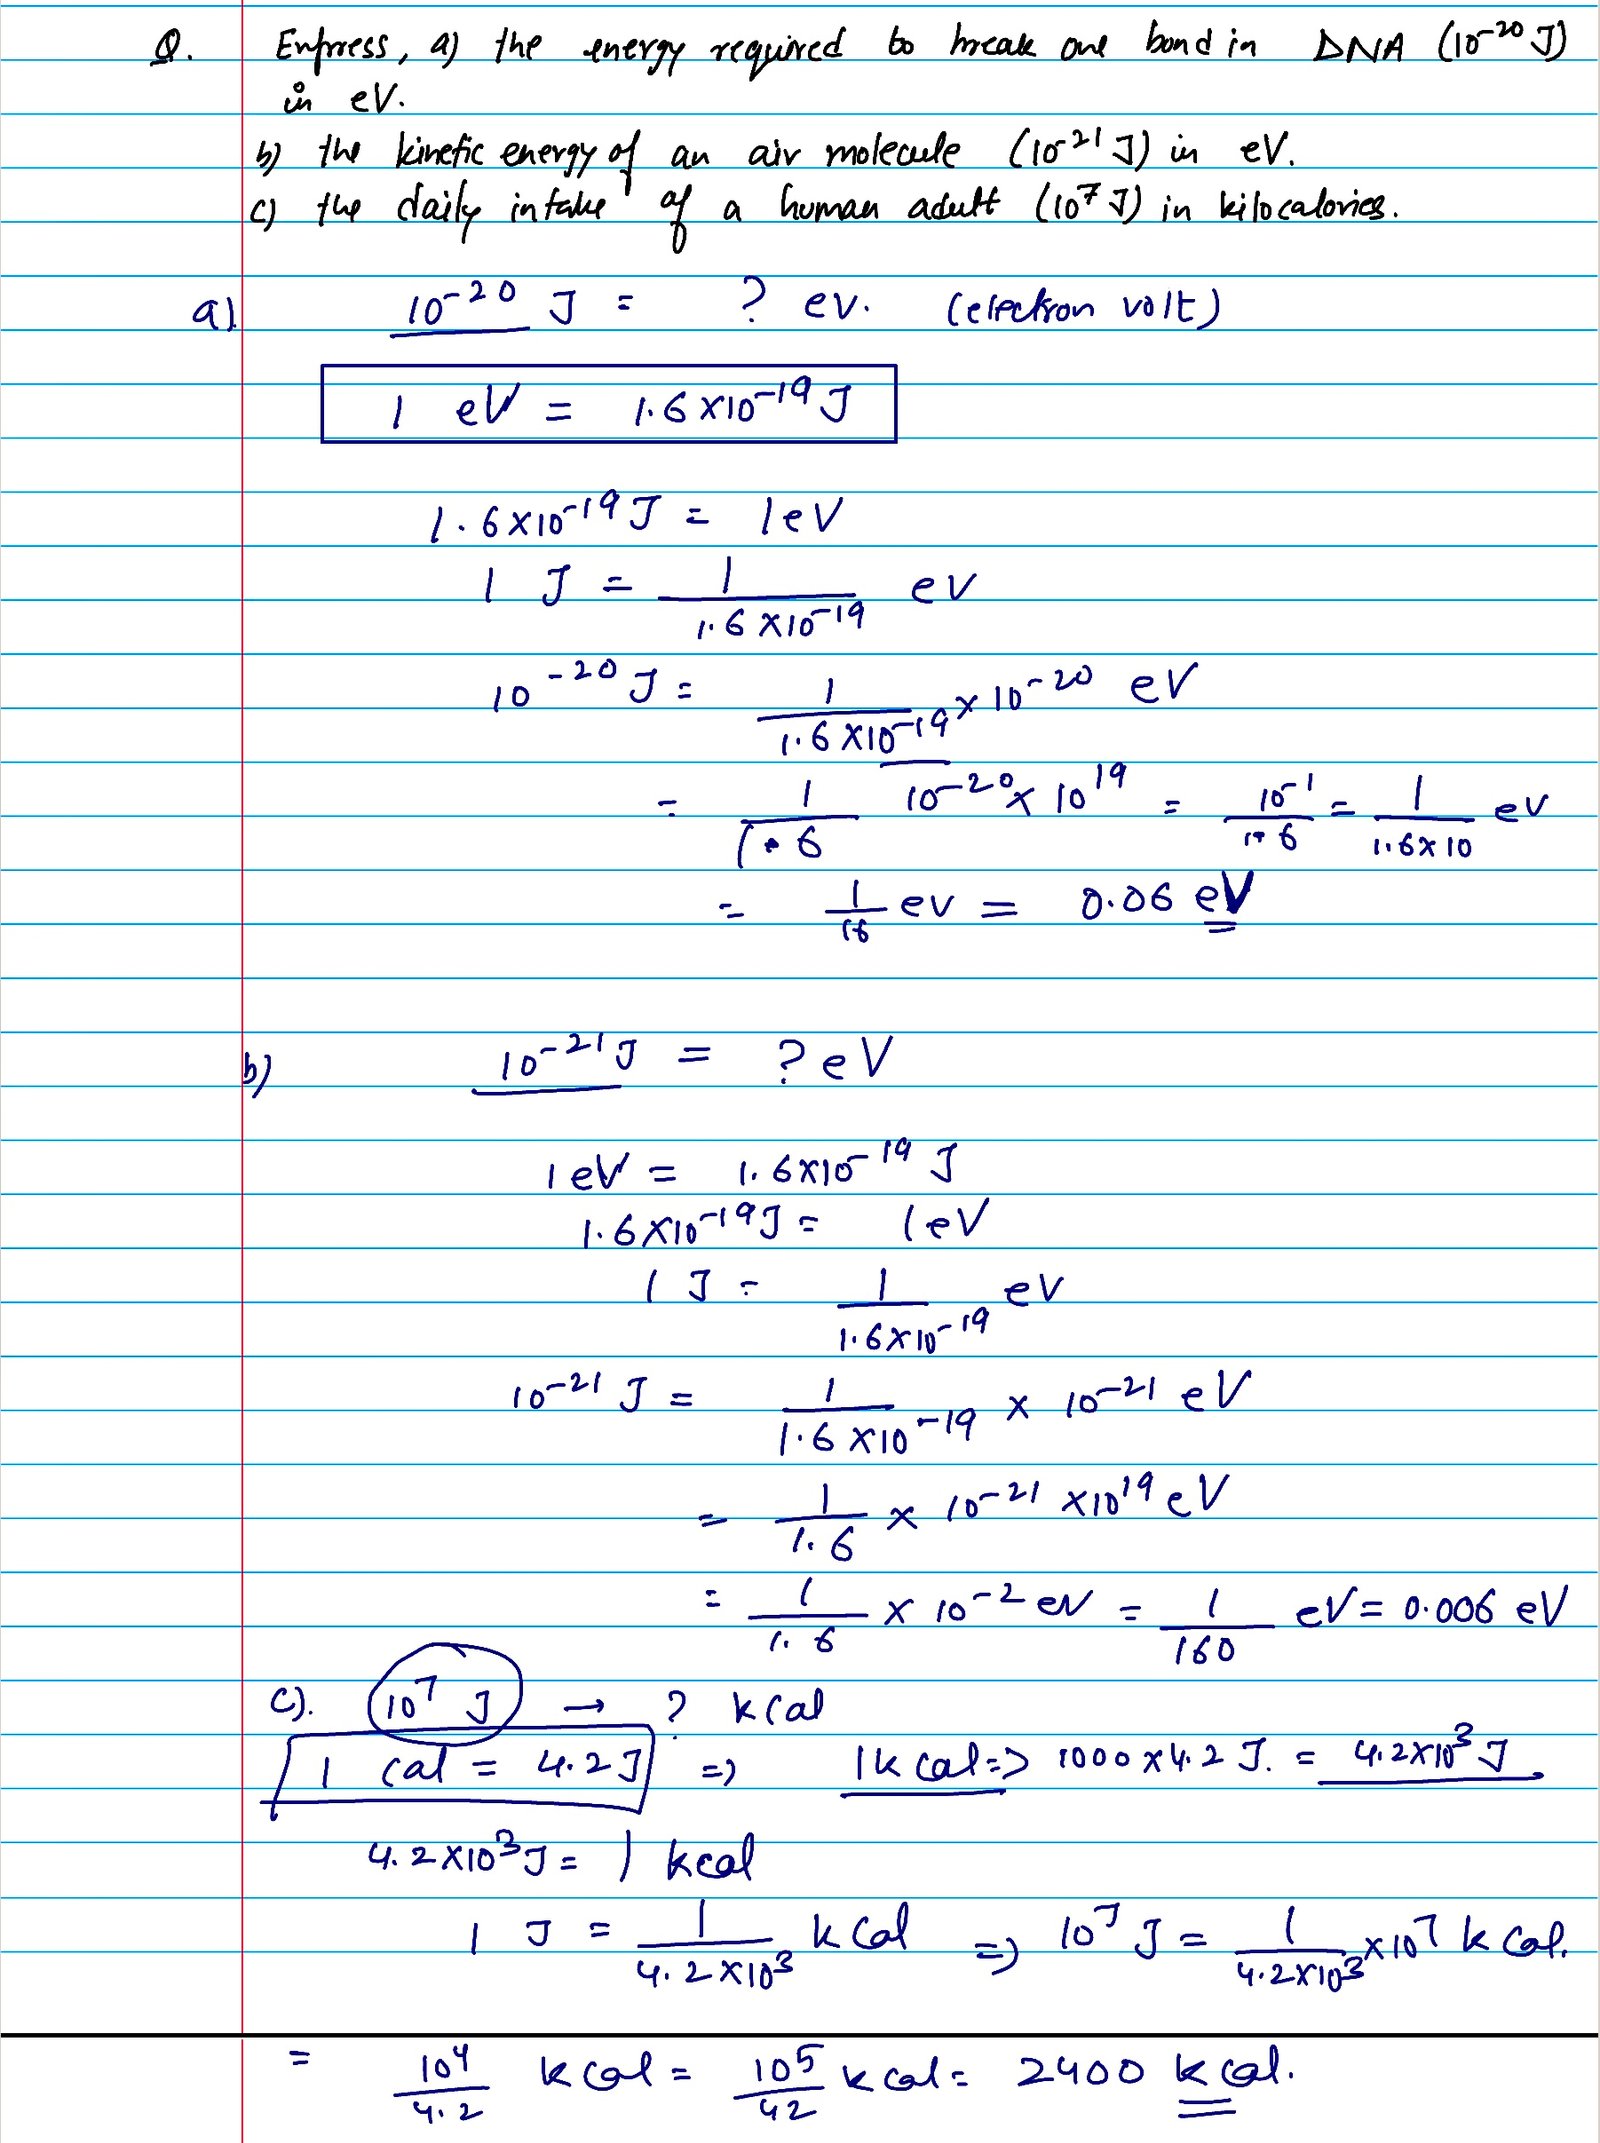 Q. Express, a) the energy required to break one bond in DNA (10⁻²⁰ J)
in eV.
b) the kinetic energy of an air molecule (10⁻²¹ J) in eV.
c) the daily intake of a human adult (10⁷ J) in kilocalories.
a). 10⁻²⁰ J = ? eV. (electron volt)
1 eV = 1.6×10⁻¹⁹ J
1.6×10⁻¹⁹ J = 1eV
1 J = 1/(1.6×10⁻¹⁹) eV
10⁻²⁰ J = 1/(1.6×10⁻¹⁹) × 10⁻²⁰ eV
= 1/1.6 10⁻²⁰ × 10¹⁹ = 10⁻¹/1.6 = 1/(1.6×10) eV
= 1/16 eV = 0.06 eV
b) 10⁻²¹ J = ? eV
1 eV = 1.6×10⁻¹⁹ J
1.6×10⁻¹⁹ J = 1eV
1 J = 1/(1.6×10⁻¹⁹) eV
10⁻²¹ J = 1/(1.6×10⁻¹⁹) × 10⁻²¹ eV
= 1/1.6 × 10⁻²¹ ×10¹⁹ eV
= 1/1.6 × 10⁻² eV = 1/160 eV = 0.006 eV
c). 10⁷ J → ? kCal
1 cal = 4.2J => 1k Cal => 1000×4.2 J. = 4.2×10³ J
4.2×10³ J = 1 kcal
1 J = 1/(4.2×10³) kCal => 10⁷ J = 1/(4.2×10³) ×10⁷ k Cal.
= 10⁴/4.2 kCal = 10⁵/42 kCal = 2400 kCal.